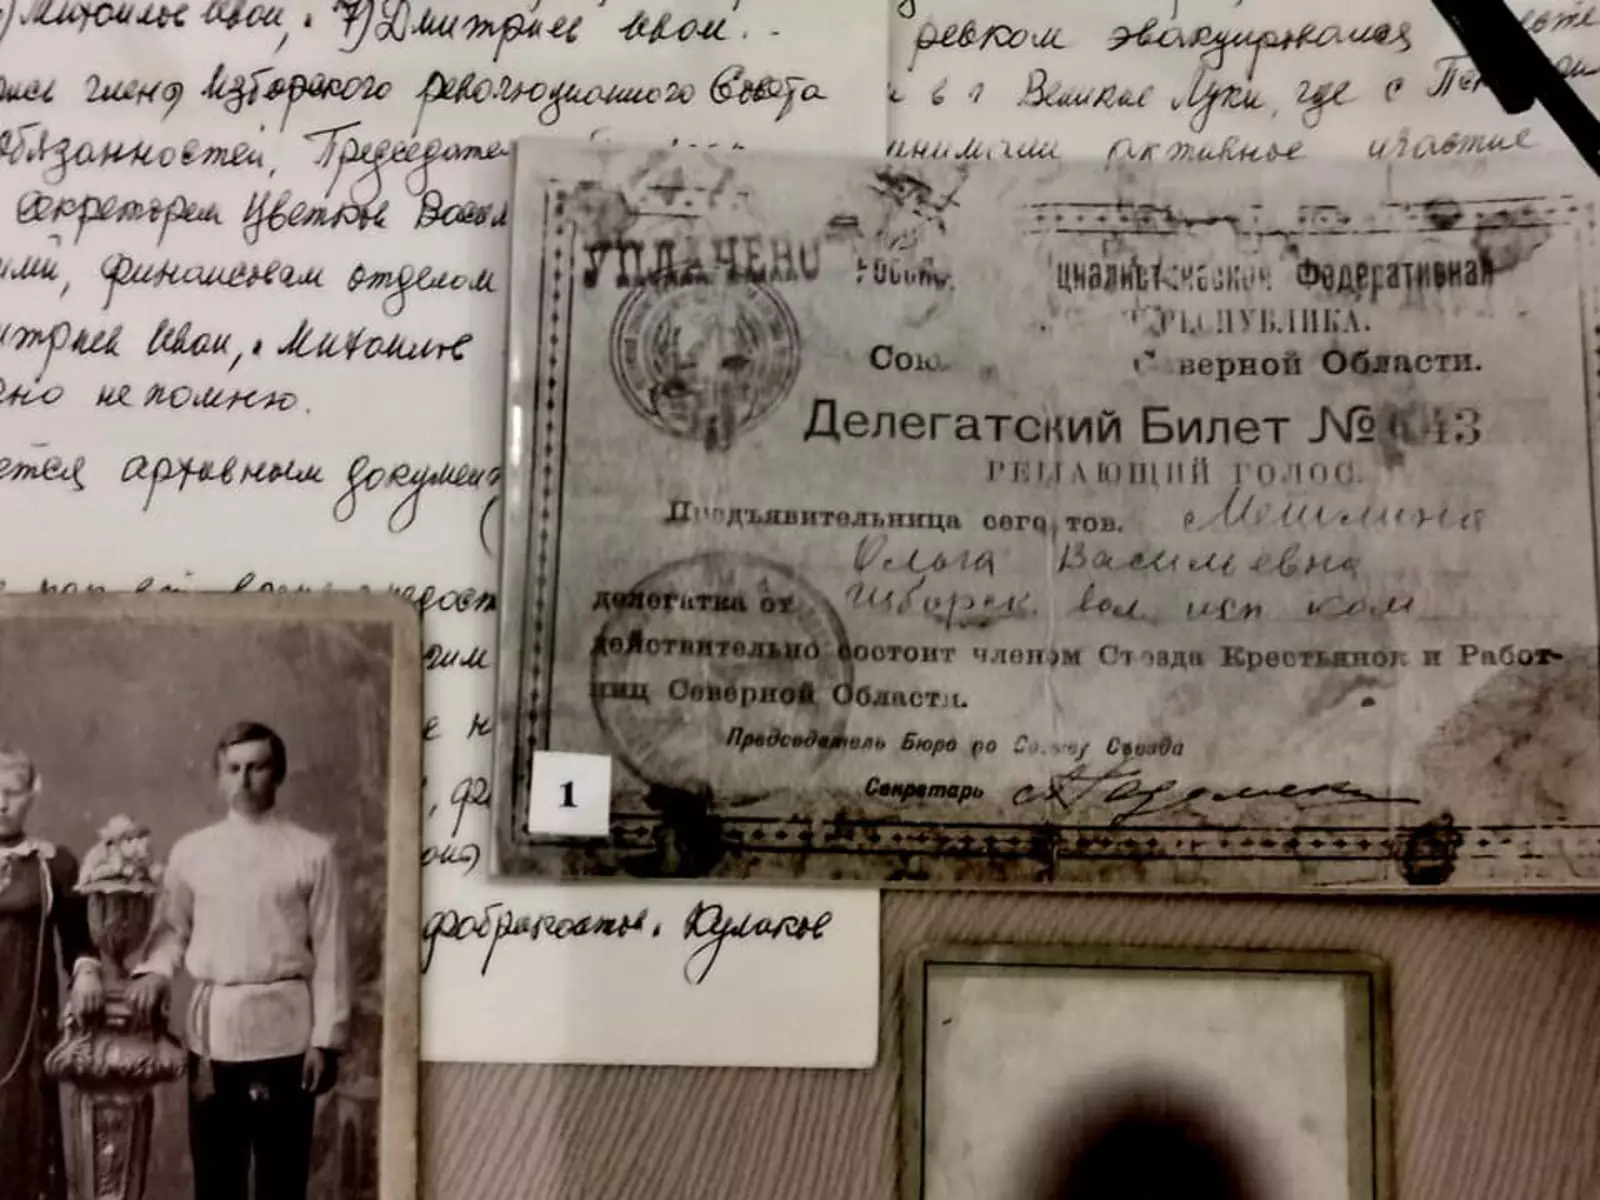 Михайлов Иван, 7) Дмитриев Иван...
члена Изборского революционного Совета
обязанностей, Председател
секретарем Цветков Васил
ими, финансовам отделом
итриев Иван, Михайлов
но не помню.
ется архивным документ
чим
е н
, фи
фабрикантов. Кулаков
ревком эвакуировался
в г Великие Луки, где с Пск
принимали активное участие
УПЛАЧЕНО
Росси циалистическая Федеративная
РЕСПУБЛИКА.
Сою верной Области.
Делегатский Билет № 43
РЕШАЮЩИЙ ГОЛОС.
Предъявительница сего тов. Мешлина
Ольга Васильевна
делегатка от Изборск. вол исп ком
действительно состоит членом Съезда Крестьянок и Работ-
ниц Северной Области.
Председатель Бюро по Созыву Съезда
Секретарь
1